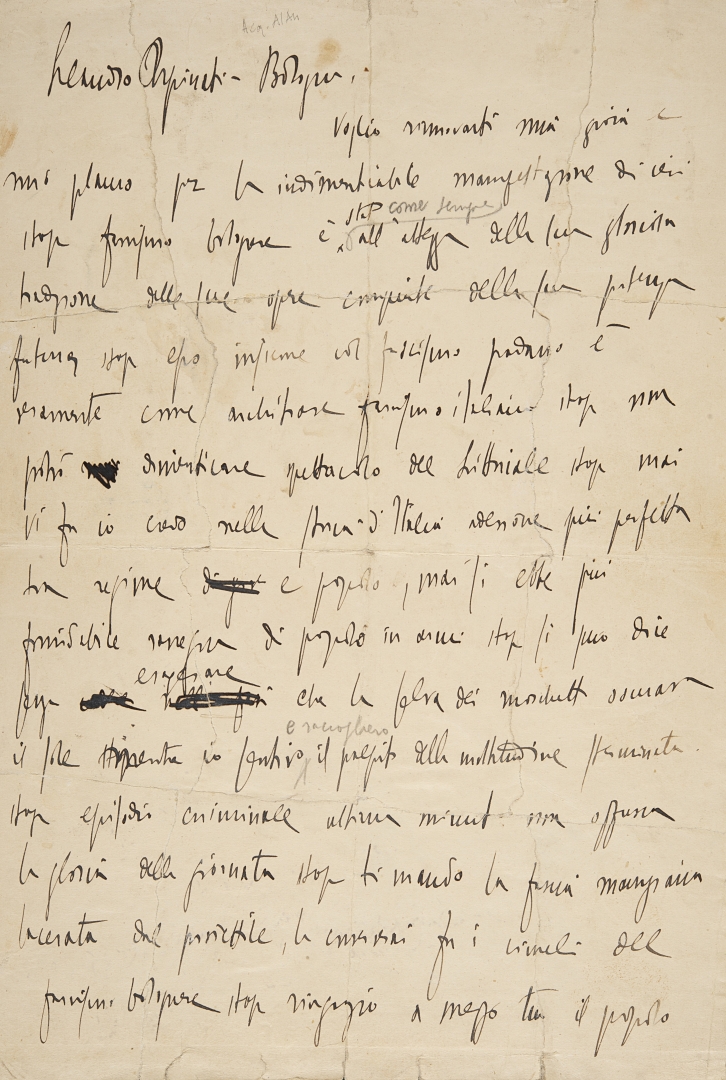 Acq. AlAn
Leandro Arpinati - Bologna.
Voglio rinnovarti mia gioia e
mio plauso per la indimenticabile manifestazione di ieri
stop come sempre
stop fascismo bolognese è all'altezza della sua gloriosa
tradizione delle sue opere compiute della sua potenza
futura stop esso insieme col fascismo padano è
veramente come architrave fascismo italiano stop non
potrò dimenticare spettacolo del Littoriale stop mai
vi fu io credo nella storia d'Italia adesione più perfetta
tra regime e popolo, mai si ebbe più
formidabile rassegna di popolo in armi stop si può dire
esagerare
senza che la selva dei moschetti oscurava
e raccoglievo
il sole mentre io sentivo il palpito della moltitudine sterminata
stop episodio criminale ultimo minuto non offusca
la gloria della giornata stop ti mando la fascia mauriziana
lacerata dal proiettile, la conserverai fra i cimeli del
fascismo bolognese stop ringrazio a mezzo tuo il popolo